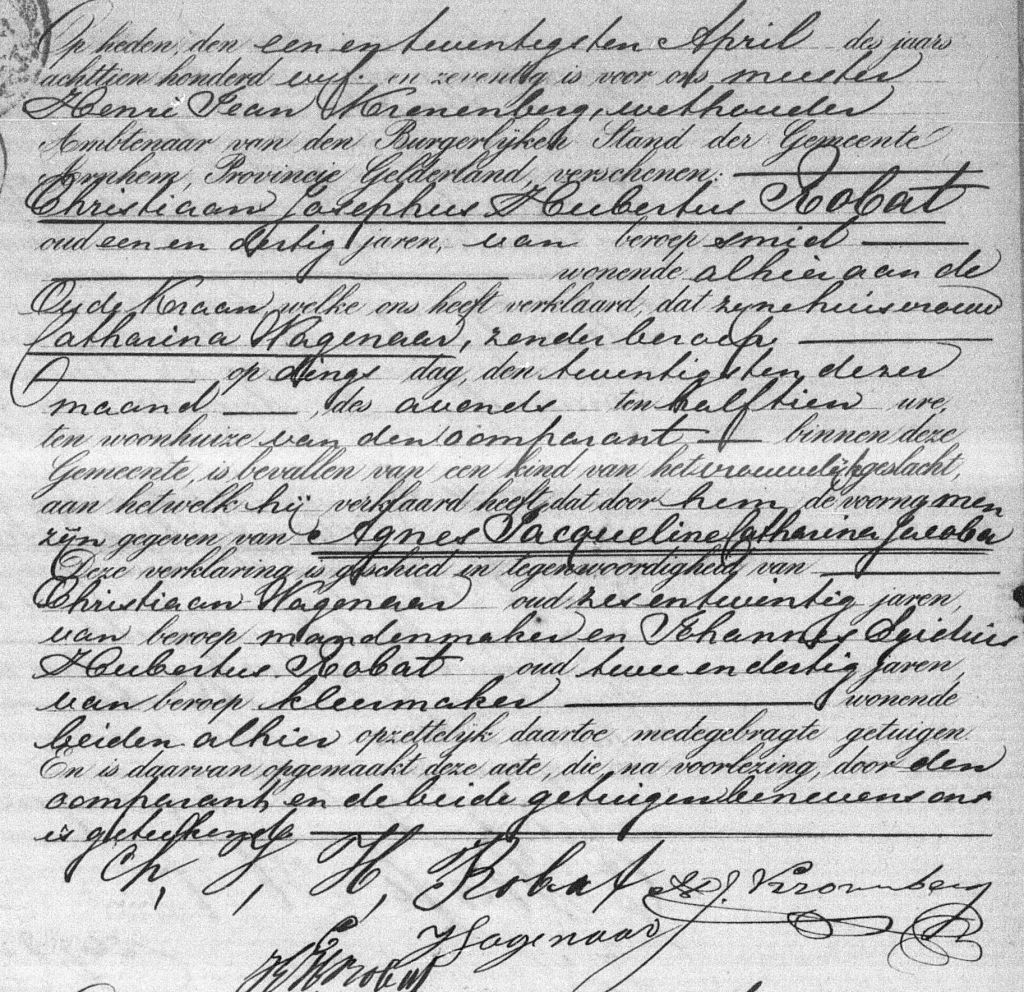 Op heden, den een en twentigsten April des jaars
achttien honderd vyf en zeventig is voor ons meester
Henri Jean Kronenberg, wethouder
Ambtenaar van den Burgerlijken Stand der Gemeente
Arnhem, Provincie Gelderland, verschenen:
Christiaan Josephus Hubertus Robat
oud een en dertig jaren, van beroep smid
wonende alhier aan de
Oude Kraan welke ons heeft verklaard, dat zyne huisvrouw
Catharina Wagenaar, zonder beroep
op dings dag, den twentigsten dezer
maand, des avonds ten half tien ure,
ten woonhuize van den comparant binnen deze
Gemeente, is bevallen van een kind van het vrouwelijk geslacht,
aan hetwelk hij verklaard heeft, dat door hem de voornamen
zijn gegeven van Agnes Jacqueline Catharina Jacoba
Deze verklaring is geschied in tegenwoordigheid van
Christiaan Wagenaar oud zes en twintig jaren,
van beroep mandenmaker en Johannes Egidius
Hubertus Robat oud twee en dertig jaren,
van beroep kleermaker wonende
beiden alhier opzettelijk daartoe medegebragte getuigen.
En is daarvan opgemaakt deze acte, die na voorlezing, door den
comparant, en de beide getuigen benevens ons
is geteekend
Ch, J, H, Robat H J Kronenberg
Wagenaar
Robat